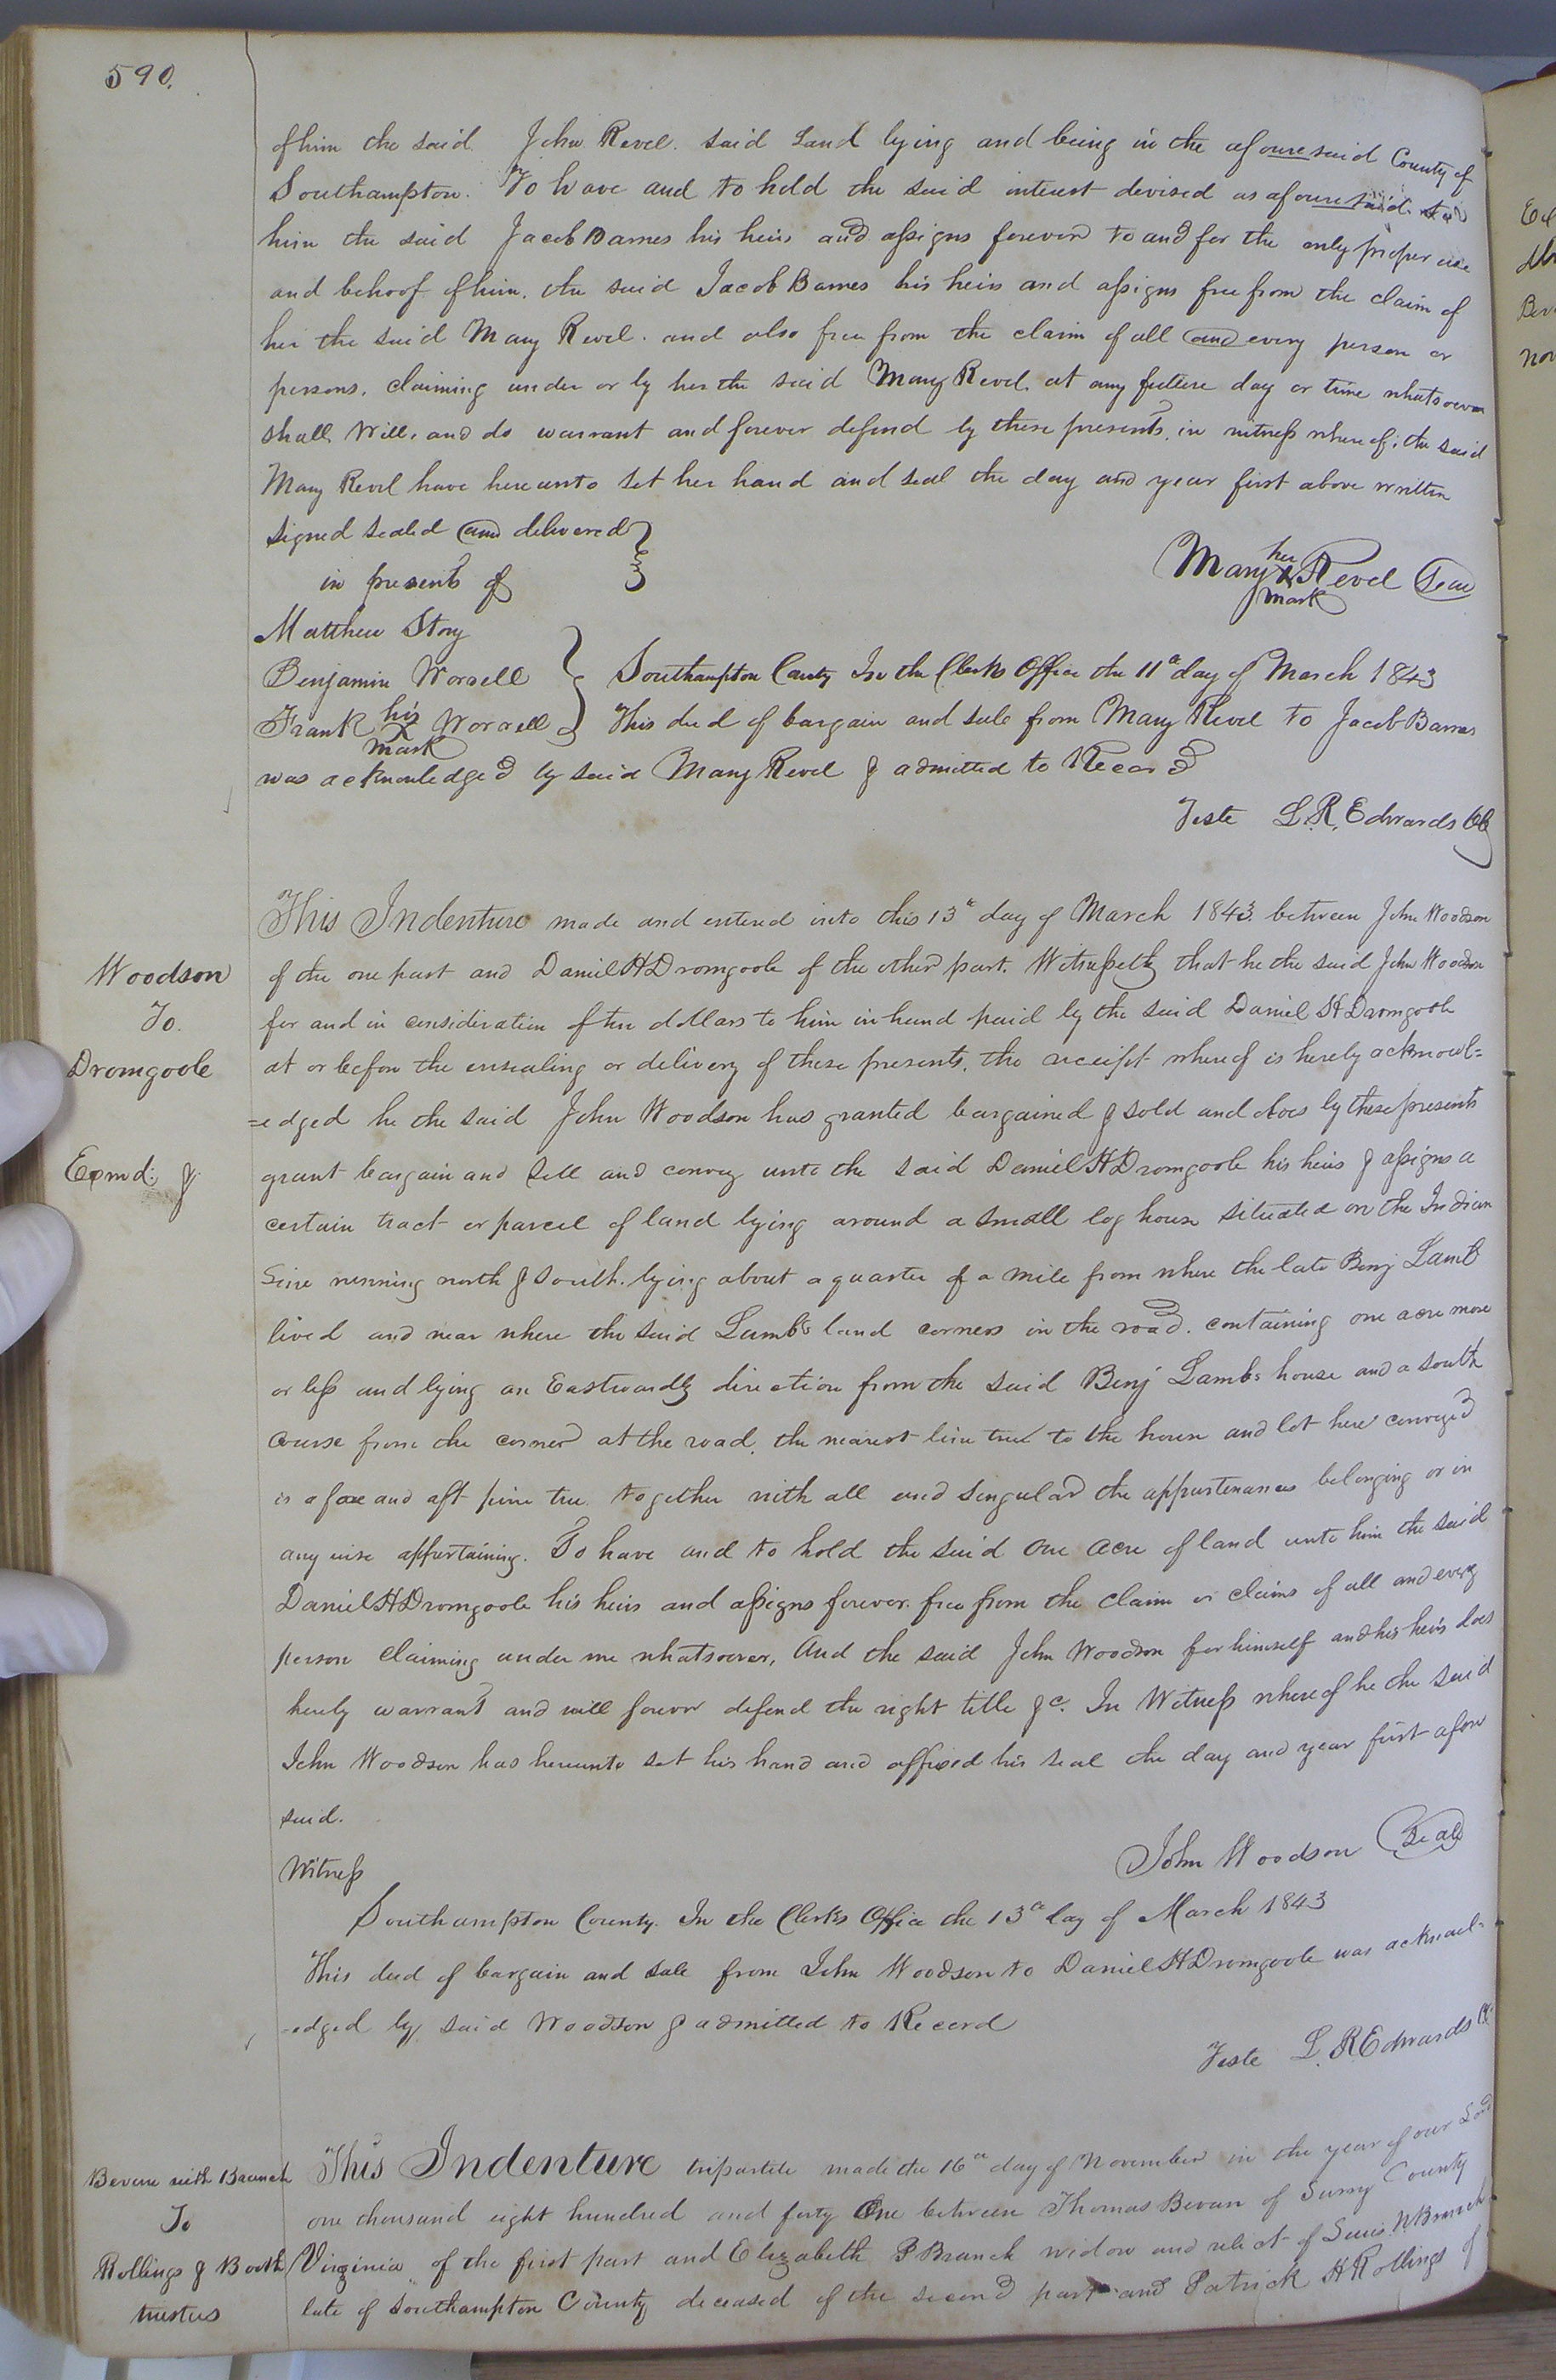 590.
of him the said John Revel. said Land lying and being in the afouresaid County of
Southampton. To have and to hold the said interest devised as afouresaid
him the said Jacob Barnes his heirs and assigns forever to and for the only proper use
and behoof of him. the said Jacob Barnes his heirs and assigns free from the claim of
her the said Mary Revel. and also free from the claim of all and every person or
persons. claiming under or by her the said Mary Revel. at any future day or time whatsoever
shall. Will. and do warrant and forever defend by these presents. in witness whereof. the said
Mary Revel have hereunto set her hand and seal the day and year first above written
signed sealed and delivered
in presents of
Mary her X mark Revel Seal
Matthew Story
Benjamin Worrell
Frank his X mark Worrell
Southampton County In the Clerks Office the 11th day of March 1843
This deed of bargain and sale from Mary Revel to Jacob Barnes
was acknowledged by said Mary Revel & admitted to Record
Teste L. R. Edwards CC
Woodson
To.
Dromgoole
Exmd. &
This Indenture made and entered into this 13th day of March 1843. between John Woodson
of the one part and Daniel H Dromgoole of the other part. Witnesseth that he the said John Woodson
for and in consideration of ten dollars to him in hand paid by the said Daniel H Dromgoole
at or before the ensealing or delivery of these presents. the receipt whereof is hereby acknowl=
=edged he the said John Woodson has granted bargained & sold and does by these presents
grant bargain and sell and convey unto the said Daniel H Dromgoole his heirs & assigns a
certain tract or parcel of land lying around a small log house situated on the Indian
Line running north & south. lying about a quarter of a mile from where the late Benj Lamb
lived and near where the said Lamb's land corners in the road. containing one acre more
or less and lying an Eastwardly direction from the said Benj Lambs house and a south
course from the corner at the road. the nearest line tree to the house and lot here conveyed
is a fore and aft pine tree. together with all and singular the appurtenances belonging or in
any wise appertaining. To have and to hold the said one acre of land unto him the said
Daniel H Dromgoole his heirs and assigns forever. free from the claim or claims of all and every
person claiming under me whatsoever, And the said John Woodson for himself and his heirs does
hereby warrant and will forever defend the right title &c. In Witness whereof he the said
John Woodson has hereunto set his hand and affixed his seal the day and year first afore
said.
Witness
John Woodson Seal
Southampton County. In the Clerks Office the 13th day of March 1843
This deed of bargain and sale from John Woodson to Daniel H Dromgoole was acknowl-
-edged by said Woodson & admitted to Record
Teste L. R Edwards CC
with Branch
To
Rollings & Booth
trustees
This Indenture tripartite made the 16th day of November in the year of our Lord
one thousand eight hundred and forty One between Thomas Bevan of Surry County
Virginia of the first part and Elizabeth P Branch widow and relict of Lewis N Branch
late of Southampton County deceased of the second part and Patrick H Rollings of